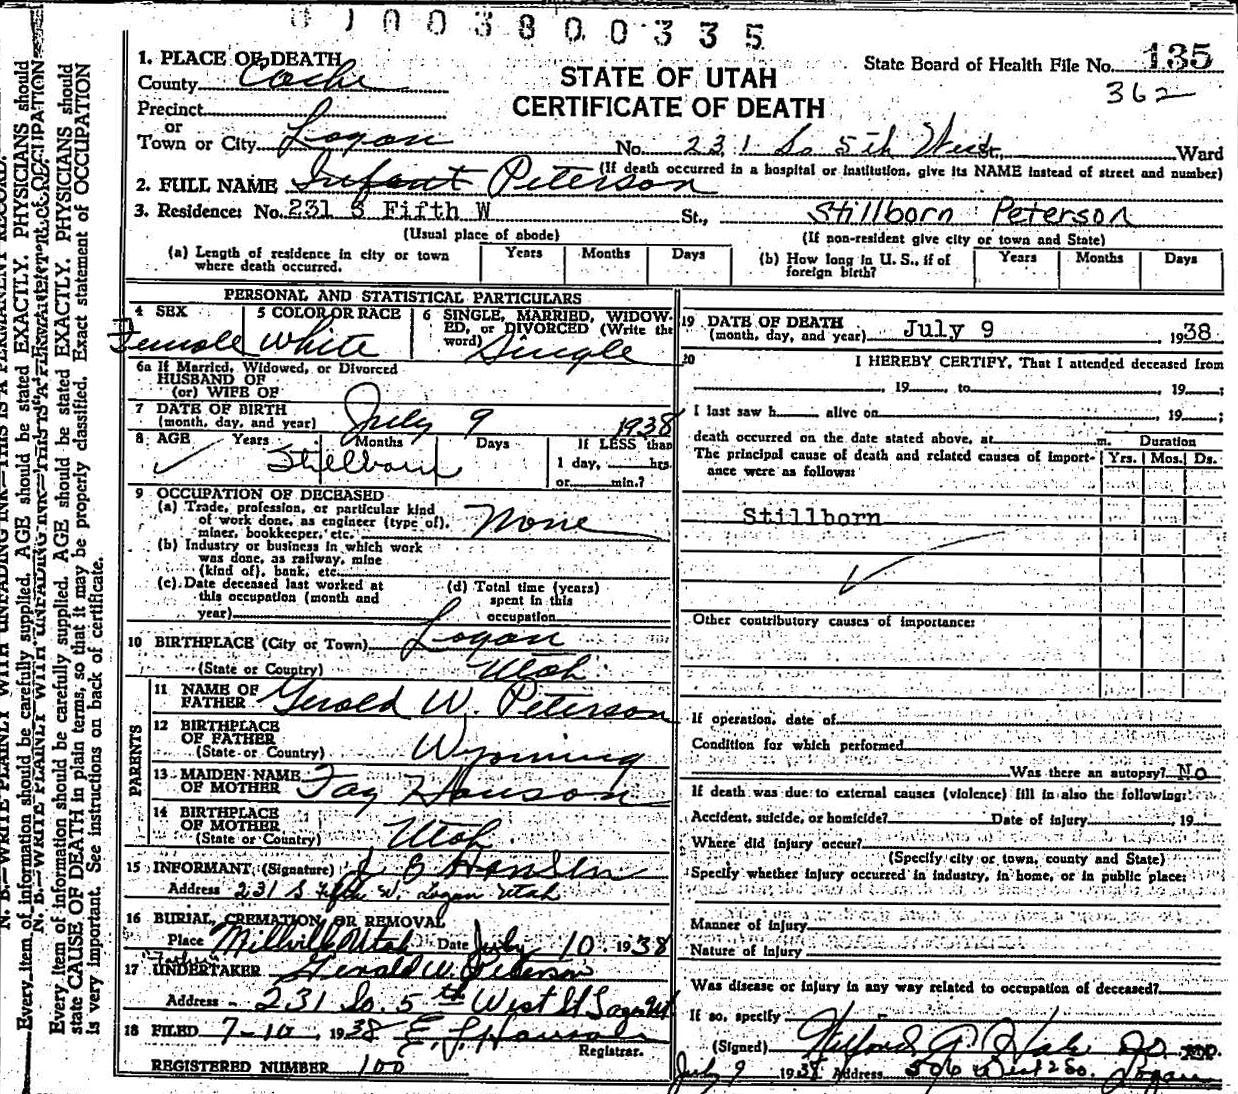 0100380 0335
1. PLACE OF DEATH
County Cache
Precinct
or
Town or City Logan
STATE OF UTAH
CERTIFICATE OF DEATH
State Board of Health File No. 135
362
No. 231 So 5th West St., Ward
(If death occurred in a hospital or institution, give its NAME instead of street and number)
2. FULL NAME Infant Peterson
3. Residence: No. 231 S Fifth W St., Stillborn Peterson
(Usual place of abode) (If non-resident give city or town and State)
(a) Length of residence in city or town where death occurred. Years Months Days
(b) How long in U. S., if of foreign birth? Years Months Days
PERSONAL AND STATISTICAL PARTICULARS
4 SEX Female
5 COLOR OR RACE White
6 SINGLE, MARRIED, WIDOWED, or DIVORCED (Write the word) Single
6a If Married, Widowed, or Divorced
HUSBAND OF
(or) WIFE OF
7 DATE OF BIRTH
(month, day, and year) July 9 1938
8 AGE Years Months Days If LESS than
Stillborn 1 day, hrs.
or min.?
9 OCCUPATION OF DECEASED
(a) Trade, profession, or particular kind
of work done, as engineer (type of),
miner, bookkeeper, etc. None
(b) Industry or business in which work
was done, as railway, mine
(kind of), bank, etc.
(c) Date deceased last worked at
this occupation (month and
year)
(d) Total time (years)
spent in this
occupation
10 BIRTHPLACE (City or Town) Logan
(State or Country) Utah
PARENTS
11 NAME OF
FATHER Gerald W. Peterson
12 BIRTHPLACE
OF FATHER
(State or Country) Wyoming
13 MAIDEN NAME
OF MOTHER Fay Hanson
14 BIRTHPLACE
OF MOTHER
(State or Country) Utah
15 INFORMANT (Signature) J B Hansen
Address 231 S Fifth W. Logan Utah
16 BURIAL, CREMATION, OR REMOVAL
Place Millville Utah Date July 10 1938
Father
17 UNDERTAKER Gerald W. Peterson
Address 231 So. 5th West St Logan Ut
18 FILED 7-10, 1938 E. J. Hanson
Registrar.
REGISTERED NUMBER 100
19 DATE OF DEATH
(month, day, and year) July 9 , 1938
20 I HEREBY CERTIFY, That I attended deceased from
, 19 , to , 19 ;
I last saw h alive on , 19 ;
death occurred on the date stated above, at m. Duration
The principal cause of death and related causes of importance were as follows: Yrs. Mos. Ds.
Stillborn
Other contributory causes of importance:
If operation, date of
Condition for which performed
Was there an autopsy? No
If death was due to external causes (violence) fill in also the following:
Accident, suicide, or homicide? Date of injury 19
Where did injury occur?
(Specify city or town, county and State)
Specify whether injury occurred in industry, in home, or in public place:
Manner of injury
Nature of injury
Was disease or injury in any way related to occupation of deceased?
If so, specify
(Signed) A. Hale
July 9 1938 Address 506 West 2 So. Logan
N. B.—WRITE PLAINLY WITH UNFADING INK—THIS IS A PERMANENT RECORD.
Every item of information should be carefully supplied. AGE should be stated EXACTLY. PHYSICIANS should
state CAUSE OF DEATH in plain terms, so that it may be properly classified. Exact statement of OCCUPATION
is very important. See instructions on back of certificate.